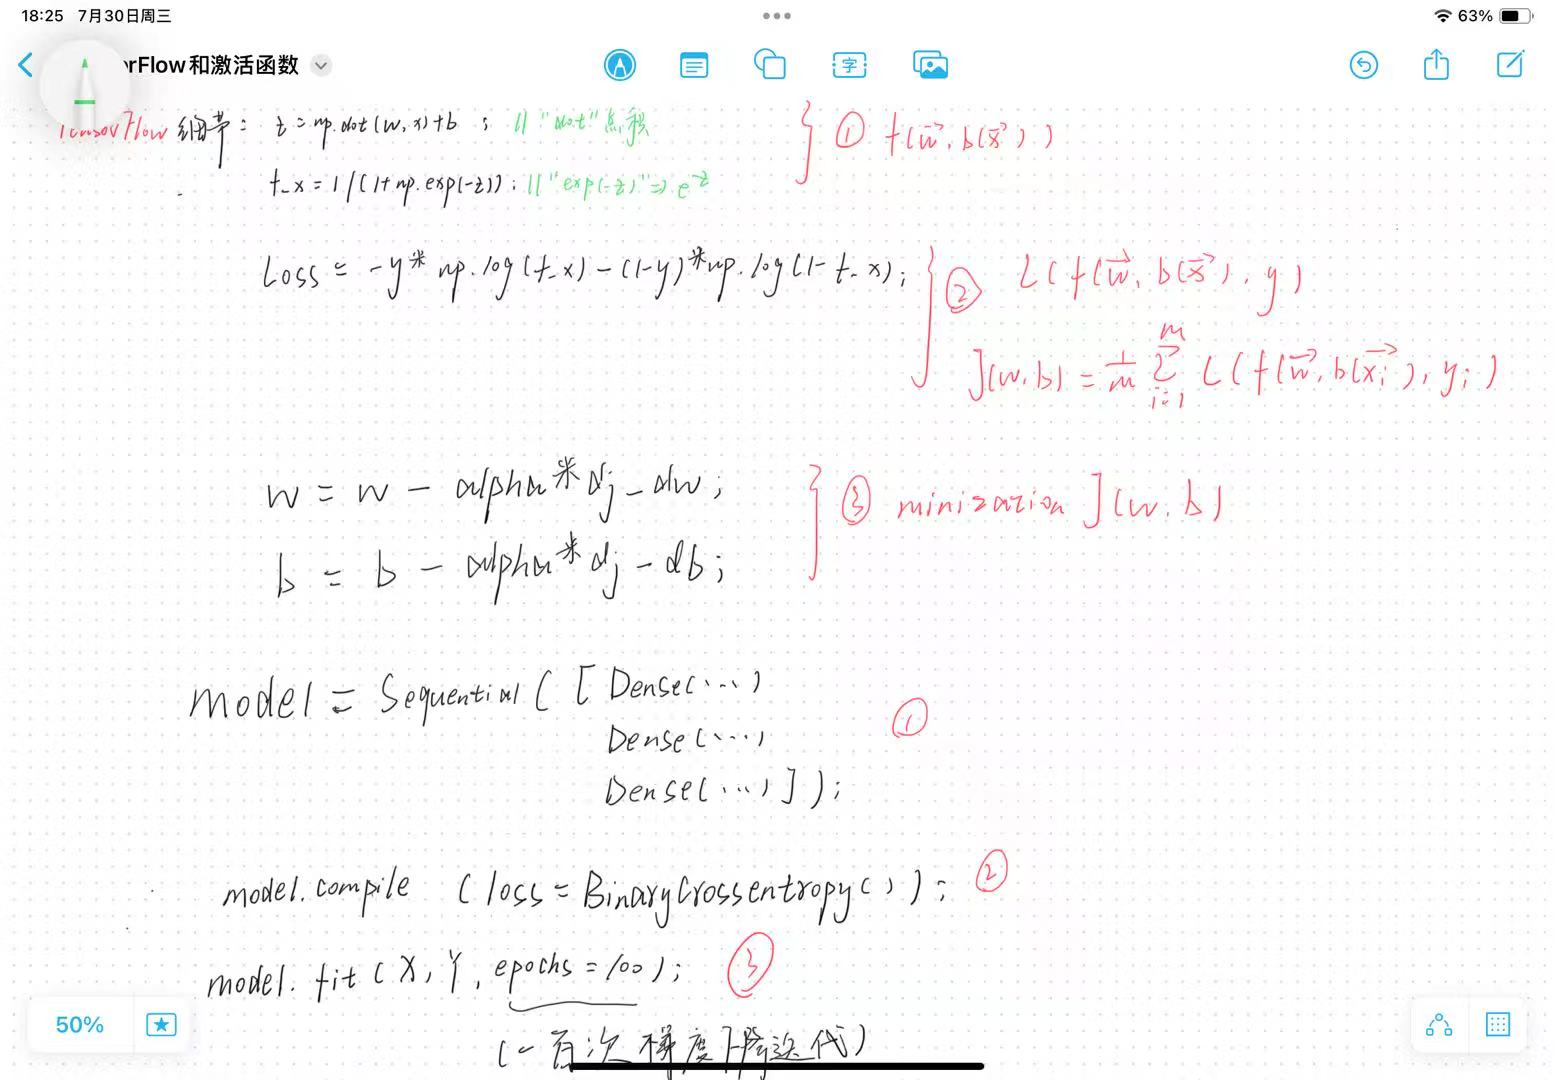 18:25 7月30日周三
63%
orFlow和激活函数
字
TensorFlow 细节: z = np.dot(w, x)+b ; // "dot"点积
} ① f(w⃗, b(x⃗))
f_x = 1/(1+np.exp(-z)); // "exp(-z)"=> e^-z
Loss = -y* np.log(f_x) - (1-y)*np.log(1-f_x);
} ② L(f(w⃗, b(x⃗), y)
J(w,b) = 1/m Σ_{i=1}^{m} L(f(w⃗, b(x⃗i), yi)
w = w - alpha* dj-dw;
} ③ minization J(w.b)
b = b - alpha* dj-db;
model = Sequential([Dense(...)
①
Dense(...)
Dense(...)]);
model.compile (loss=BinaryCrossentropy()); ②
model.fit(X,Y, epochs=100); ③
50%
(一百次梯度下降迭代)